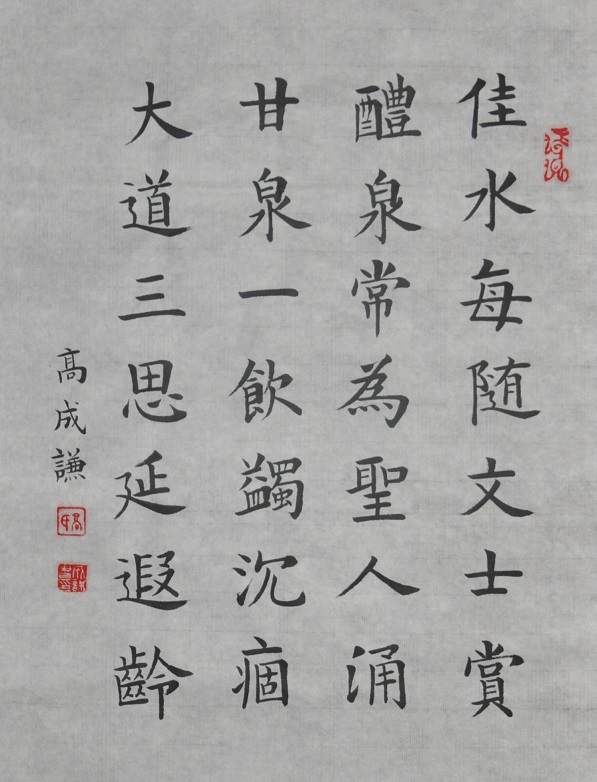 佳水每随文士賞
醴泉常為聖人涌
甘泉一飲蠲沉痼
大道三思延遐齡
高成謙